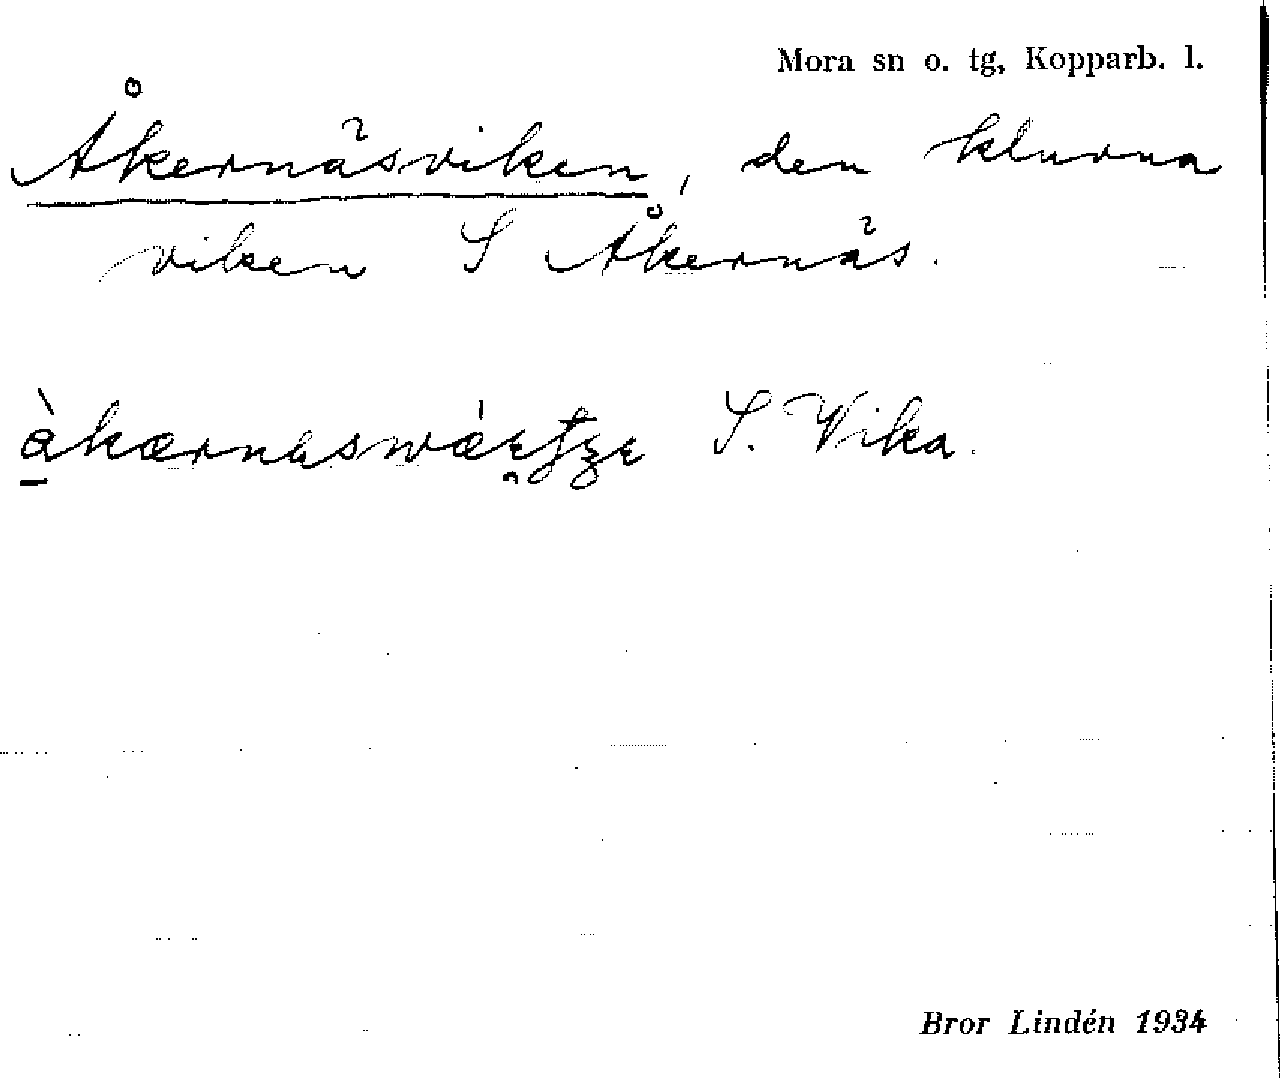 Mora sn o. tg, Kopparb. l.
Åkernäsviken, den kluvna
viken S Åkernäs.
S. Vika.
Bror Lindén 1934